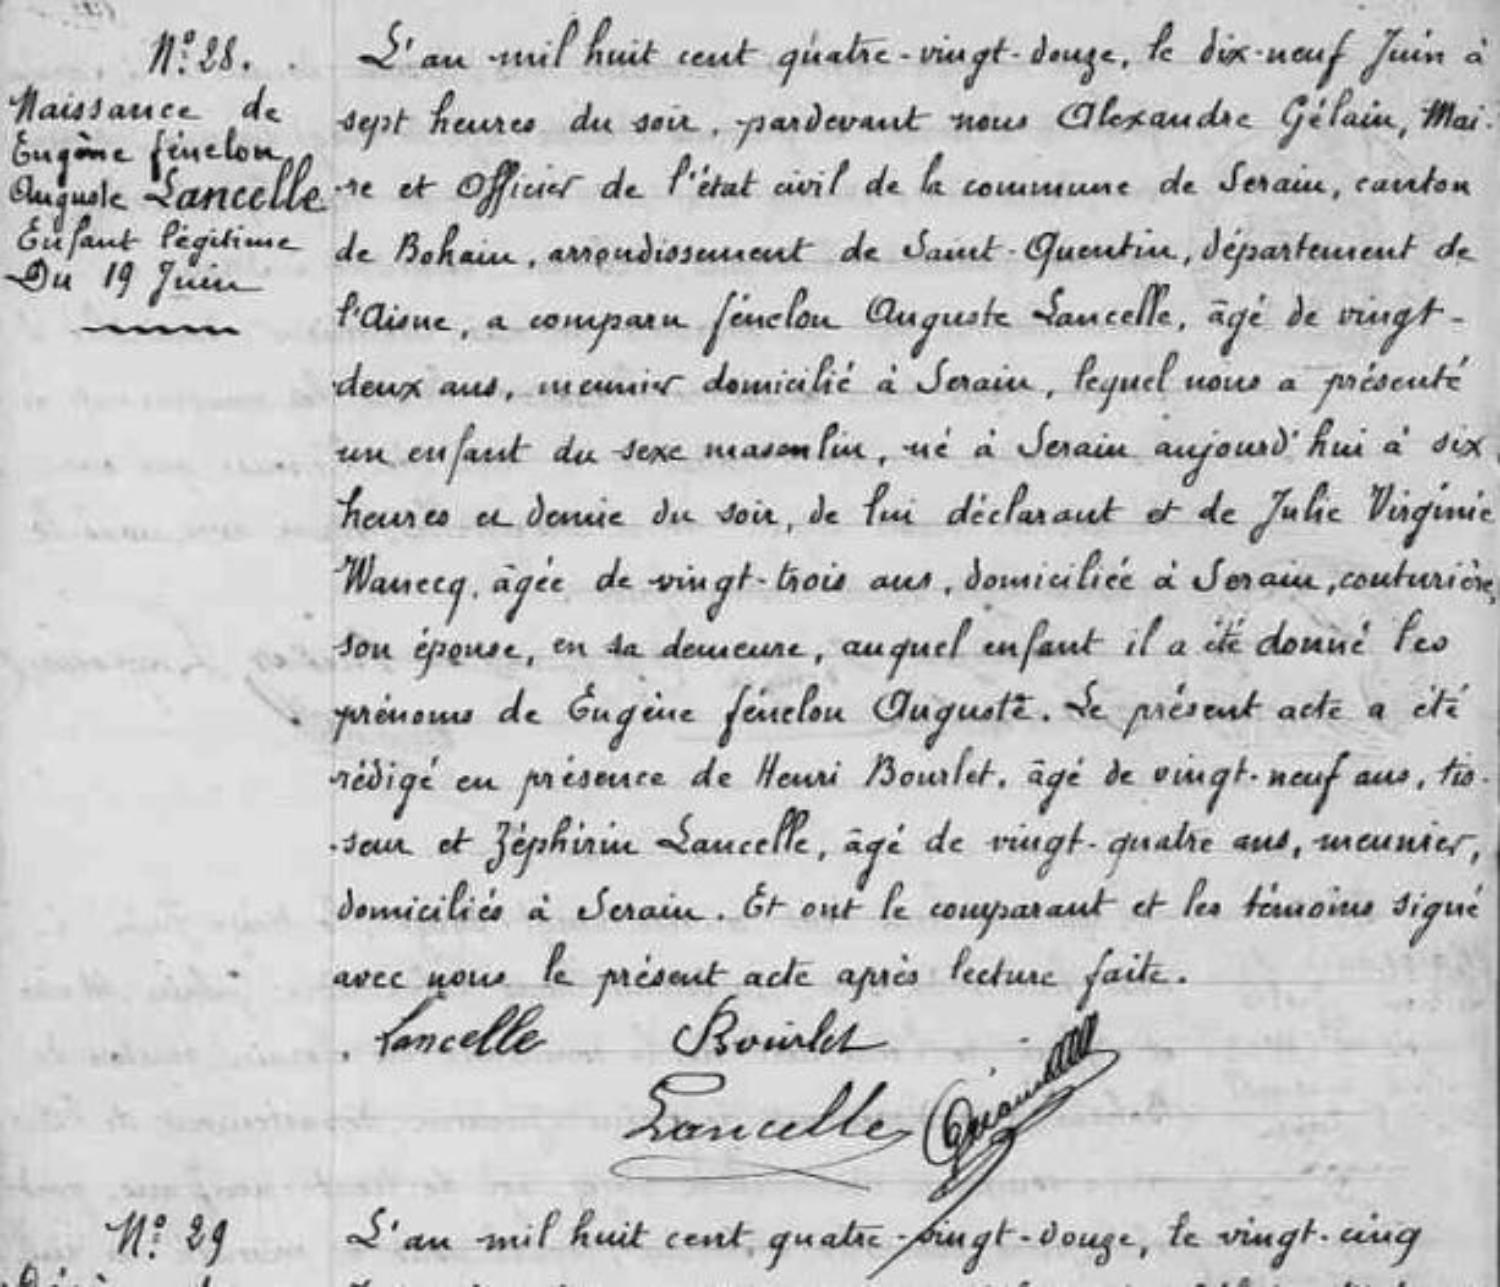 N.º 28.
Naissance de
Eugène Fénelon
Auguste Lancelle
Enfant légitime
Du 19 Juin
L'an mil huit cent quatre-vingt-douze, le dix-neuf Juin à
sept heures du soir, pardevant nous Alexandre Gélain, Mai-
-re et Officier de l'état civil de la commune de Serain, canton
de Bohain, arrondissement de Saint-Quentin, département de
l'Aisne, a comparu Fénelon Auguste Lancelle, âgé de vingt-
deux ans, meunier domicilié à Serain, lequel nous a présenté
un enfant du sexe masculin, né à Serain aujourd'hui à six
heures et demie du soir, de lui déclarant et de Julie Virginie
Wanecq, âgée de vingt-trois ans, domiciliée à Serain, couturière,
son épouse, en sa demeure, auquel enfant il a été donné les
prénoms de Eugène Fénelon Auguste. Le présent acte a été
rédigé en présence de Henri Bourlet, âgé de vingt-neuf ans, tis-
-seur et Zéphirin Lancelle, âgé de vingt-quatre ans, meunier,
domiciliés à Serain. Et ont le comparant et les témoins signé
avec nous le présent acte après lecture faite.
Lancelle Bourlet
Lancelle
N.º 29 L'an mil huit cent quatre-vingt-douze, le vingt-cinq